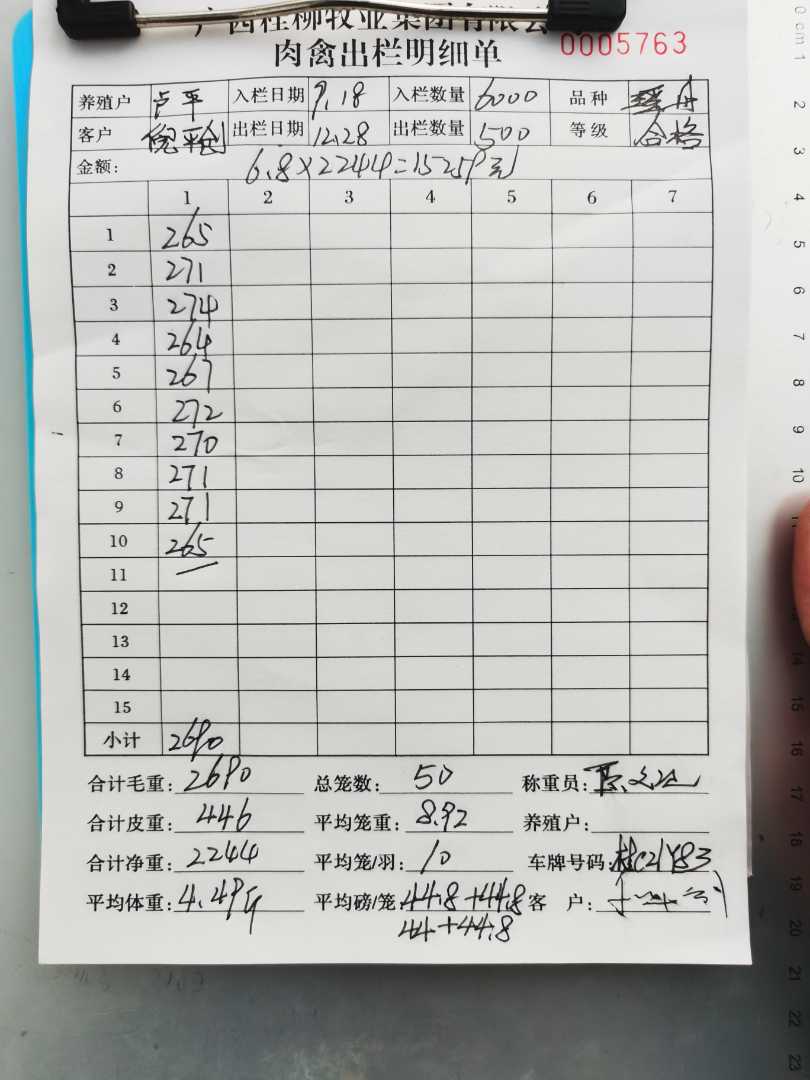 广西桂柳牧业集团有限公
肉禽出栏明细单 0005763
养殖户 卢平 入栏日期 9.18 入栏数量 6000 品种
客户 倪平创 出栏日期 12.28 出栏数量 500 等级 合格
金额: 6.8×2244=15259元
1 2 3 4 5 6 7
1 265
2 271
3 274
4 264
5 267
6 272
7 270
8 271
9 271
10 265
11
12
13
14
15
小计 2690
合计毛重: 2690 总笼数: 50 称重员:
合计皮重: 446 平均笼重: 8.92 养殖户:
合计净重: 2244 平均笼/羽: 10 车牌号码: 桂C21Y83
平均体重: 4.49 平均磅/笼 44.8+44.8 客 户:
44+44.8
0 cm 1
2
3
4
5
6
7
8
9
10
11
14
15
16
17
18
19
20
21
22
23